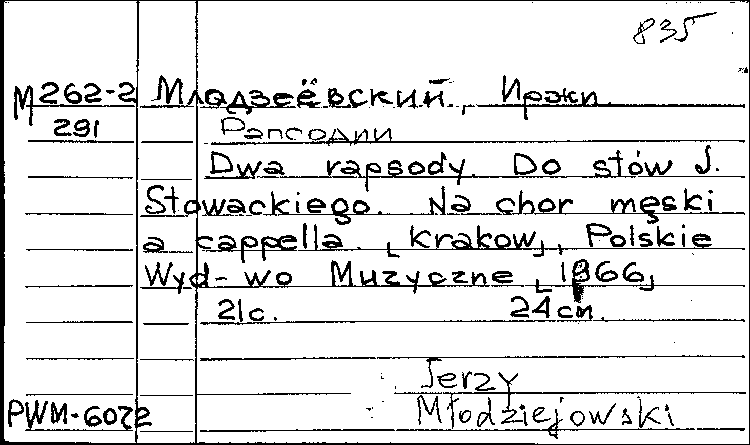 835
М 262-2 Млодзеёвский, Иржи
291 Рапсодии
Dwa rapsody. Do stów J.
Stowackiego. Na chor męski
a cappella. [Krakow], Polskie
Wyd-wo Muzyczne [1966]
21с. 24 см.
Jerzy
PWM-6072 Młodziejowski